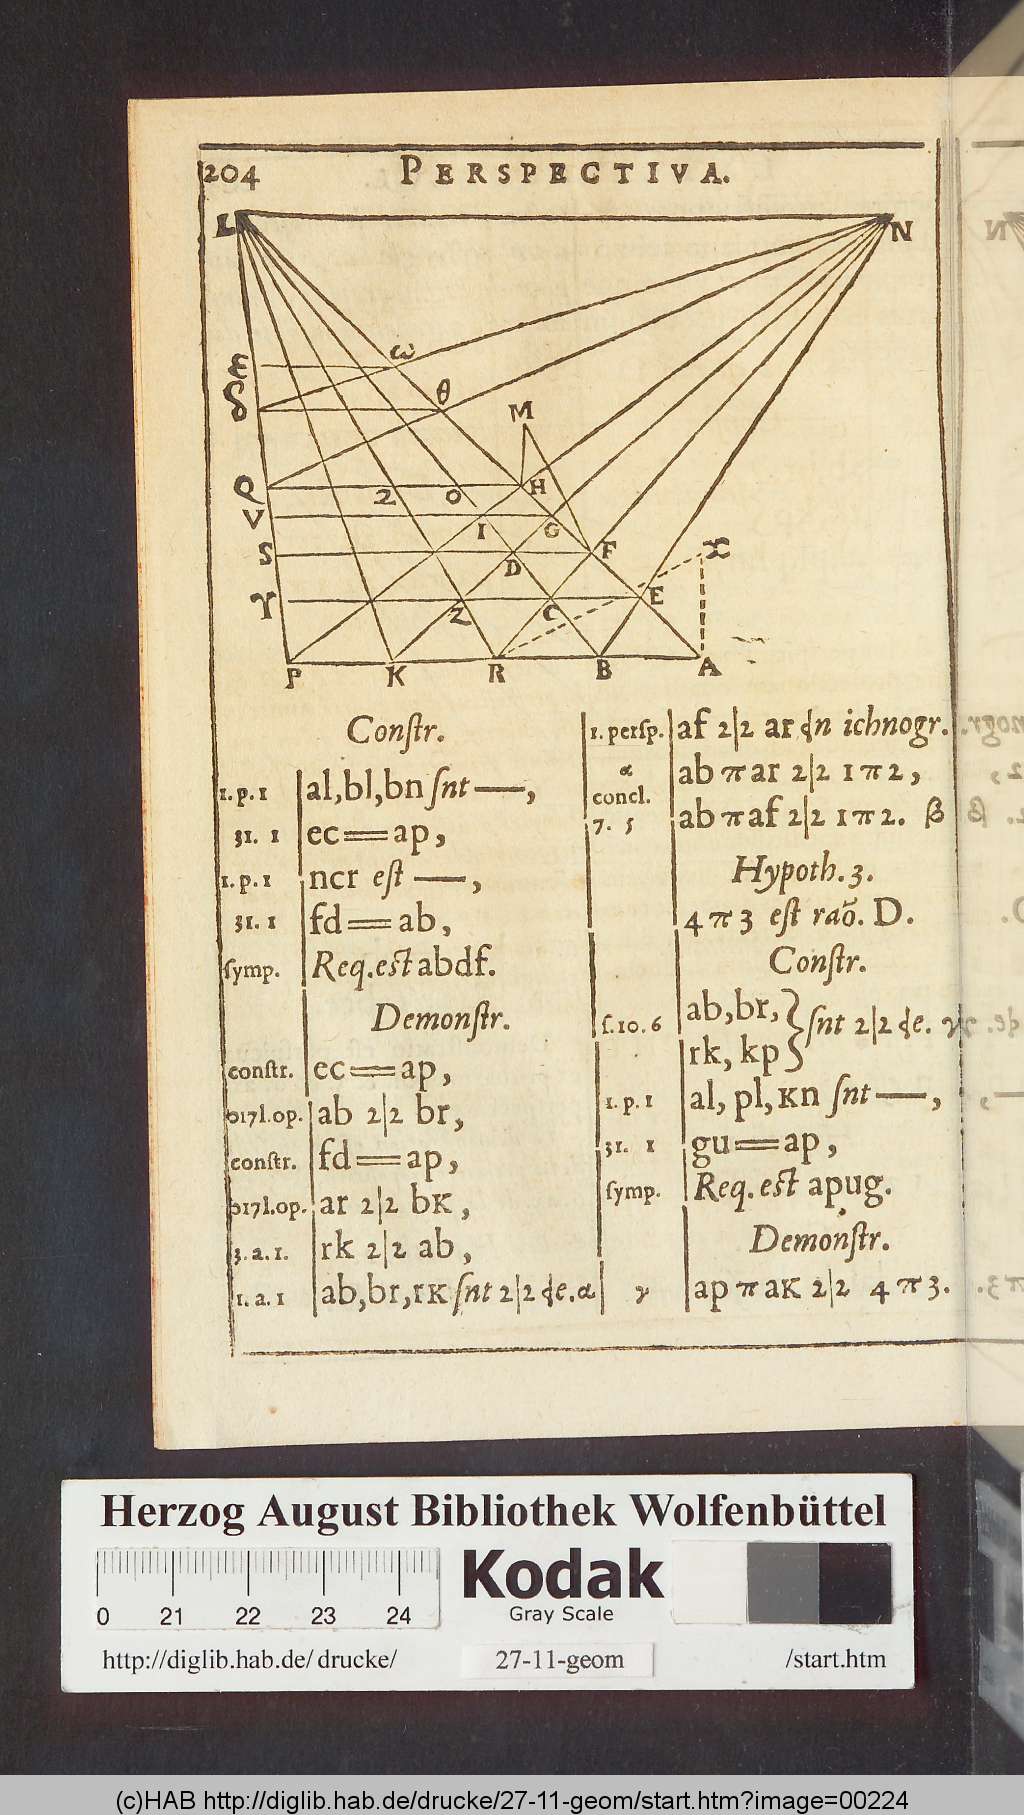 204 PERSPECTIVA.
L N
ε ω
δ θ
M
Q 2 O H
V I G
S D F X
Υ Z C E
P K R B A
Constr.
1. p. 1 al, bl, bn ſnt —,
31. 1 ec == ap,
1. p. 1 ncr eſt —,
31. 1 fd == ab,
ſymp. Req. eſt abdf.
Demonſtr.
conſtr. ec == ap,
217l.op. ab 2|2 br,
conſtr. fd == ap,
217l.op. ar 2|2 bk,
3. a. 1. rk 2|2 ab,
1. a. 1 ab, br, rk ſnt 2|2 ɖe. α
1. perſp. af 2|2 ar ɖn ichnogr.
α ab π ar 2|2 1 π 2,
concl.
7. 5 ab π af 2|2 1 π 2. β
Hypoth. 3.
4 π 3 eſt raõ. D.
Conſtr.
ſ. 10. 6 ab, br, } ſnt 2|2 ɖe. γ
rk, kp
1. p. 1 al, pl, kn ſnt —,
31. 1 gu == ap,
ſymp. Req. eſt apug.
Demonſtr.
γ ap π ak 2|2 4 π 3.
Herzog August Bibliothek Wolfenbüttel
0 21 22 23 24
Kodak
Gray Scale
http://diglib.hab.de/drucke/ 27-11-geom /start.htm
(c)HAB http://diglib.hab.de/drucke/27-11-geom/start.htm?image=00224